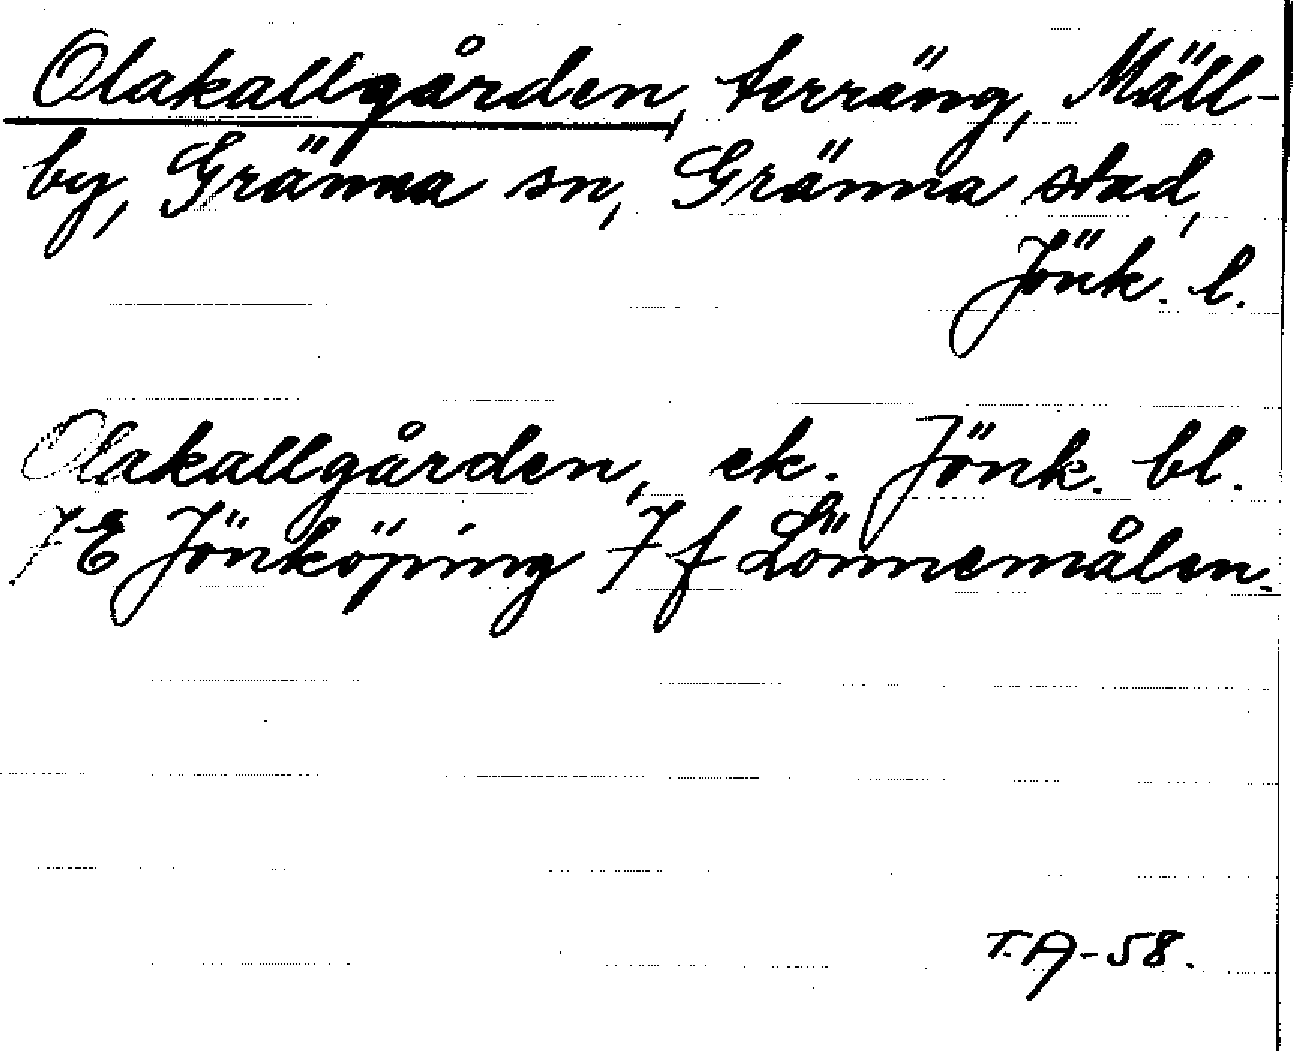 Olakallgården, terräng, Mäll-
by, Gränna sn, Gränna stad,
Jönk. l.
Olakallgården, ek. Jönk. bl.
7E Jönköping 7f Lönnemålen.
T.A-58.